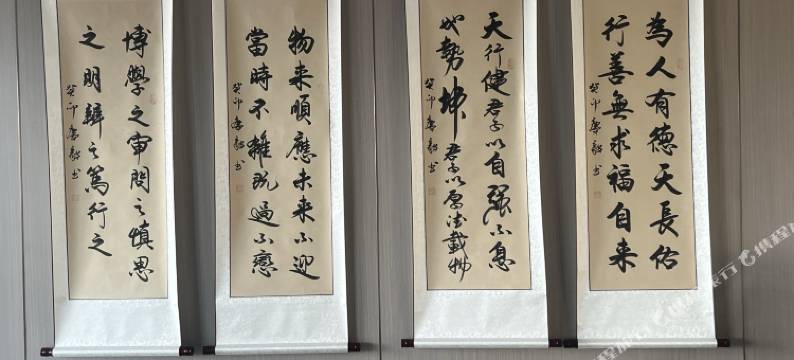 為人有德天長佑
行善無求福自来
癸卯 书
天行健君子以自强不息
地勢坤君子以厚德載物
癸卯 书
物来順應未来不迎
當時不雜既過不戀
癸卯 书
博學之审問之慎思
之明辨之篤行之
癸卯 书
携程旅行